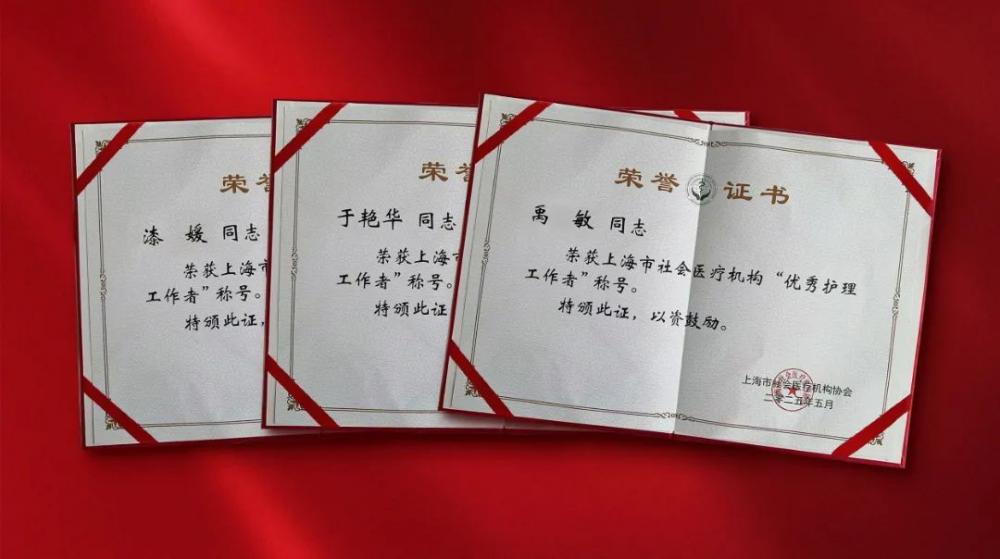 荣誉
漆 媛 同志
荣获上海市
工作者”称号。
特颁此证，
荣
于艳华 同志
荣获上海市
工作者”称号。
特颁此证
荣誉证书
禹 敏 同志
荣获上海市社会医疗机构“优秀护理
工作者”称号。
特颁此证，以资鼓励。
上海市社会医疗机构协会
二零二五年五月